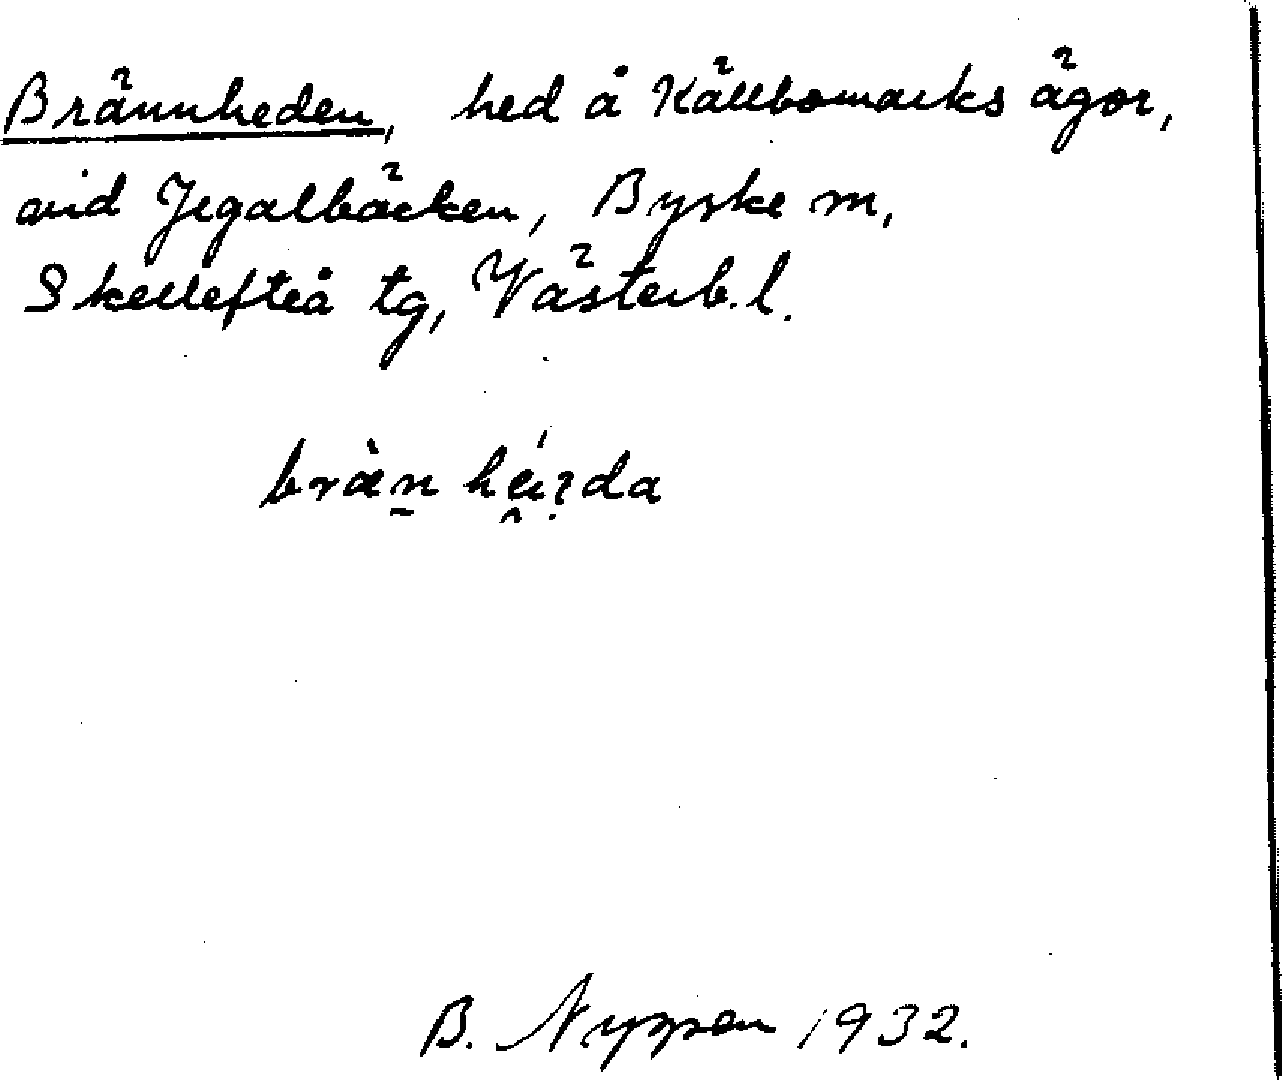 Brännheden, hed å Källbomarks ägor,
vid Jegalbäcken, Byske sn,
Skellefteå tg, Västerb. l.
B. Nyppen 1932.